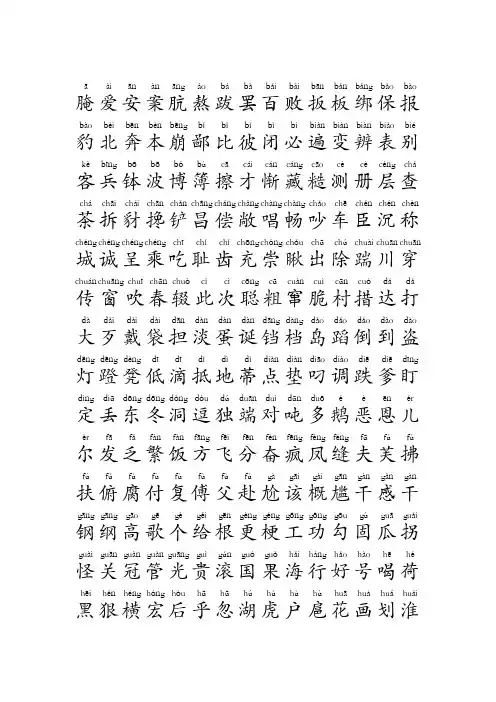 ā ài ān àn āng áo bá bà bǎi bài bān bǎn bǎng bǎo bào
腌 爱 安 案 肮 熬 跋 罢 百 败 扳 板 绑 保 报
bào běi bēn běn bēng bǐ bǐ bǐ bì bì biàn biàn biàn biǎo bié
豹 北 奔 本 崩 鄙 比 彼 闭 必 遍 变 辨 表 别
kè bīng bō bō bó bù cā cái cán cáng cāo cè cè céng chá
客 兵 钵 波 博 簿 擦 才 惭 藏 糙 测 册 层 查
chá chāi chái chān chǎn chāng cháng chǎng chàng chàng chǎo chē chén chén chēn
茶 拆 豺 搀 铲 昌 偿 敞 唱 畅 吵 车 臣 沉 称
chéng chéng chéng chéng chī chǐ chǐ chōng chóng chǒu chū chú chuài chuān chuān
城 诚 呈 乘 吃 耻 齿 充 崇 瞅 出 除 踹 川 穿
chuán chuāng chuī chūn chuò cǐ cì cōng cū cuàn cuì cūn cuò dá dǎ
传 窗 吹 春 辍 此 次 聪 粗 窜 脆 村 措 达 打
dà dǎi dài dài dān dàn dàn dàn dāng dàng dǎo dǎo dǎo dào dào
大 歹 戴 袋 担 淡 蛋 诞 铛 档 岛 蹈 倒 到 盗
dēng dēng dèng dī dī dǐ dì dì diǎn diàn diāo diào diē diē dīng
灯 蹬 凳 低 滴 抵 地 蒂 点 垫 叼 调 跌 爹 盯
dìng diū dōng dōng dòng dòu dú duān duì dūn duō é è ēn ér
定 丢 东 冬 洞 逗 独 端 对 吨 多 鹅 恶 恩 儿
ěr fā fá fán fàn fāng fēi fēn fèn fēng fèng fèng fū fú fú
尔 发 乏 繁 饭 方 飞 分 奋 疯 凤 缝 夫 芙 拂
fú fǔ fǔ fù fù fù fù fù gà gāi gài gān gān gǎn gàn
扶 俯 腐 付 复 傅 父 赴 尬 该 概 尴 干 感 干
gāng gāng gāo gē gè gěi gēn gèng gěng gōng gōng gōu gù guā guǎi
钢 纲 高 歌 个 给 根 更 梗 工 功 勾 固 瓜 拐
guài guān guàn guǎn guāng guì gǔn guó guǒ hǎi háng hǎo hào hē hé
怪 关 冠 管 光 贵 滚 国 果 海 行 好 号 喝 荷
hēi hěn héng hóng hòu hū hū hú hǔ hù hù huā huà huá huái
黑 狠 横 宏 后 乎 忽 湖 虎 户 扈 花 画 划 淮